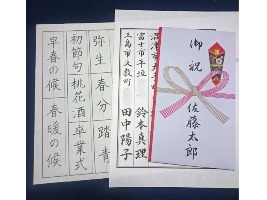 弥生 春分 踏青
初節句 桃花酒 卒業式
早春の候 春暖の候
富士市平垣
鈴木真理
三島市文教町
田中陽子
御祝
佐藤太郎